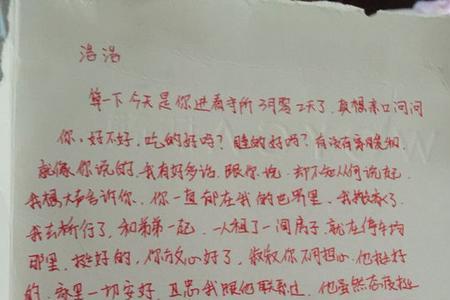 洛洛
算一下今天是你进看守所3月零2天了,真想亲口问问
你,好不好,吃的好吗?睡的好吗?有没有
就像你说的,我有好多话,跟你说,却不知从何说起,
我想大声告诉你,你一直都在我的世界里,我搬家了
我去新行了,和弟弟一起,一人租了一间房子,就在停车场
那里,挺好的,你放心好了,你不用担心,他挺好
的,家里一切安好,且忌我跟他联系过,他虽然态度挺